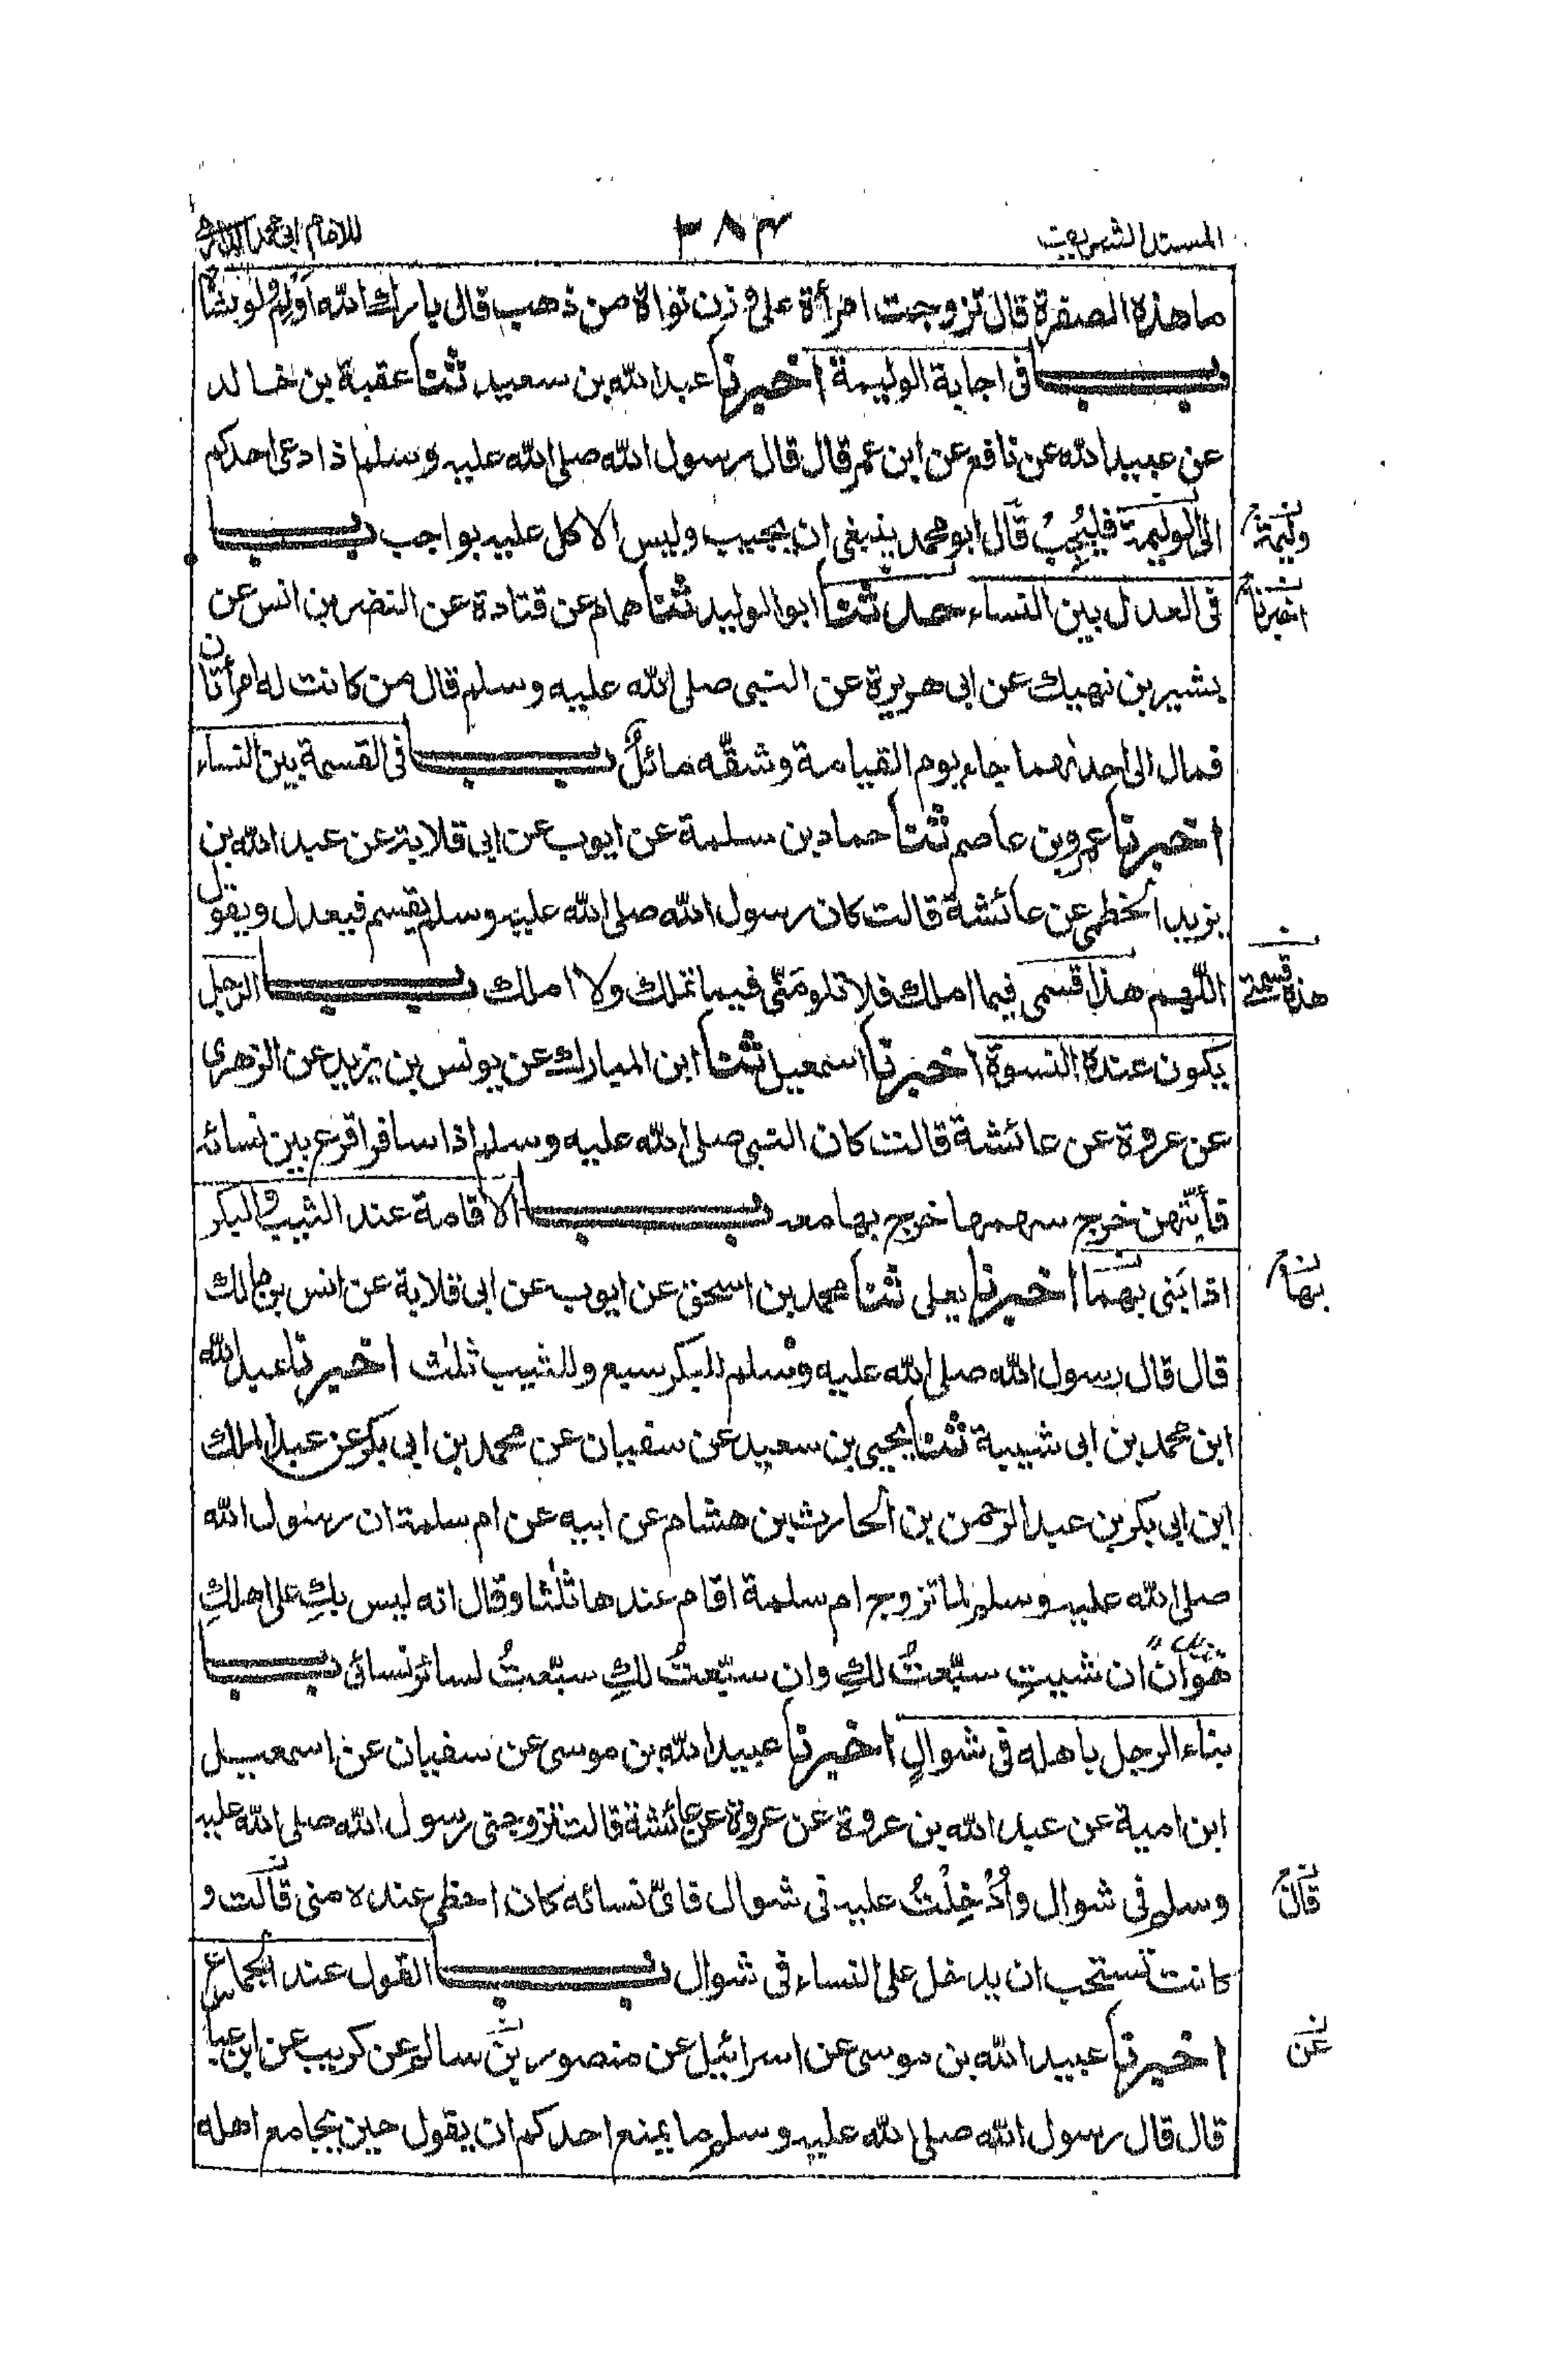 المسند الشريف ٣٨٤ للامام ابى محمد الدارمى
ما هذه الصفرة قال تزوجت امرأة على وزن نواة من ذهب قال بارك الله اَولِم ولو بشاة
بــاب فى اجابة الوليمة اخبرنا عبد الله بن سعيد ثنا عقبة بن خالد
عن عبيد الله عن نافع عن ابن عمر قال قال رسول الله صلى الله عليه وسلم اذا دعى احدكم
الى الوليمة فليُجِبْ قال ابو محمد ينبغى ان يجيب وليس الاكل عليه بواجب بــاب
وليمة
فى العدل بين النساء حدثنا ابو الوليد ثنا همام عن قتادة عن النضر بن انس عن
اخبرنا
بشير بن نهيك عن ابى هريرة عن النبى صلى الله عليه وسلم قال من كانت له امرأتان
فمال الى احدٰهما جاء يوم القيامة وشقّه مائلٌ بــاب فى القسمة بين النساء
اخبرنا عمرو بن عاصم ثنا حماد بن سلمة عن ايوب عن ابى قلابة عن عبد الله بن
يزيد الخطمى عن عائشة قالت كان رسول الله صلى الله عليه وسلم يقسم فيعدل ويقول
اللّٰهم هذا قسمى فيما املك فلا تلومَنّى فيما تملك ولا املك بــاب الرجل
هذه قسمتى
يكون عنده النسوة اخبرنا اسمعيل ثنا ابن المبارك عن يونس بن يزيد عن الزهرى
عن عروة عن عائشة قالت كان النبى صلى الله عليه وسلم اذا سافر اقرع بين نسائه
فأيّتهن خرج سهمها خرج بها معه بــاب الاقامة عند الثيب والبكر
اذا بَنى بهما اخبرنا يعلى ثنا محمد بن اسحٰق عن ايوب عن ابى قلابة عن انس بن مالك
بها
قال قال رسول الله صلى الله عليه وسلم للبكر سبع وللثيب ثلٰث اخبرنا عبد الله
ابن محمد بن ابى شيبة ثنا يحيى بن سعيد عن سفيان عن محمد بن ابى بكر عن عبد الملك
ابن ابى بكر بن عبد الرحمن بن الحارث بن هشام عن ابيه عن ام سلمة ان رسول الله
صلى الله عليه وسلم لما تزوج ام سلمة اقام عندها ثلٰثا وقال انه ليس بكِ على اهلكِ
هَوَانٌ ان شيبتِ سبّعتُ لكِ وان سبّعتُ لكِ سبّعتُ لسائر نسائى بــاب
بناء الرجل باهله فى شوالٍ اخبرنا عبيد الله بن موسى عن سفيان عن اسمعيل
ابن امية عن عبد الله بن عروة عن عروة عن عائشة قالت تزوجنى رسول الله صلى الله عليه
وسلم فى شوال وأُدْخِلْتُ عليه فى شوال فاىّ نسائه كان احظى عنده منى قالت و
قال
كانت تستحب ان يدخل على النساء فى شوال بــاب القول عند الجماع
اخبرنا عبيد الله بن موسى عن اسرائيل عن منصور بن سالم عن كريب عن ابن عباس
عن
قال قال رسول الله صلى الله عليه وسلم ما يمنع احدكم ان يقول حين يجامع اهله